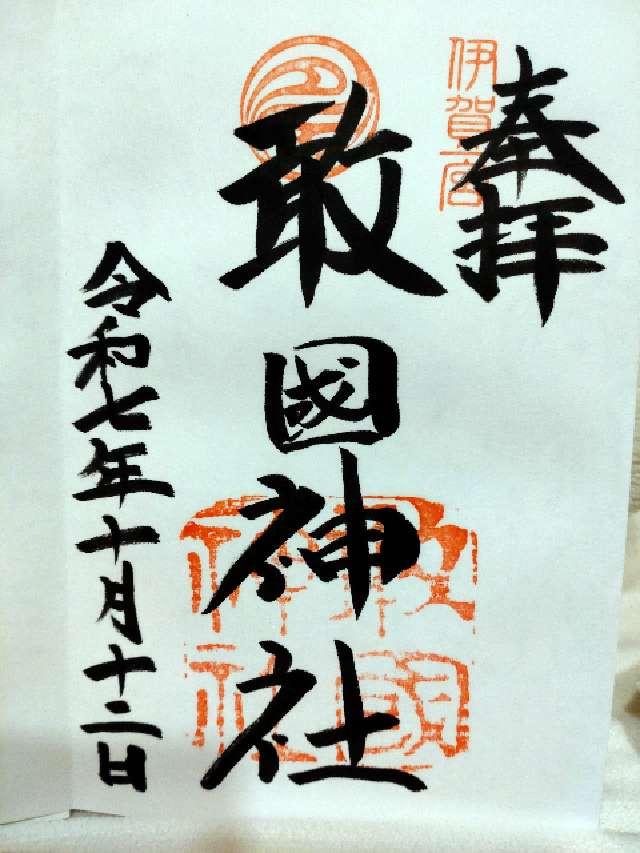 奉拝
伊賀一宮
敢國神社
敢國神社
令和七年十月十二日